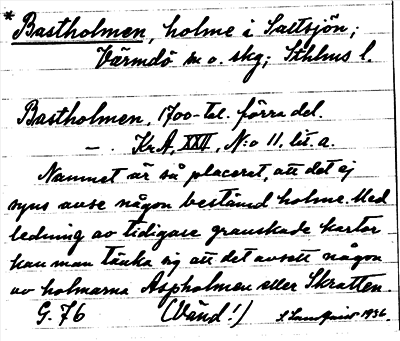 * Bastholmen, holme i Saltsjön;
Värmdö sn o. skg; Sthlms l.
Bastholmen. 1700-tal. förra del.
— . Kr.A. XXII, N:o 11, lit. a.
Namnet är så placerat, att det ej
syns avse någon bestämd holme. Med
ledning av tidigare granskade kartor
kan man tänka sig att det avsett någon
av holmarna Aspholmen eller Skratten.
G. 76 (Vänd!) 1936.